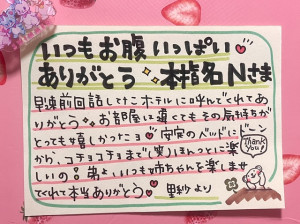 いつもお腹いっぱい♥
ありがとう 本椎名Nさま
早速前回話してたホテルに呼んでくれてあ
りがとう お部屋は遠くても その気持ちが
とっても嬉しかったョ♡ 安定のベッドにドーン
から、コチョコチョまで(笑)ほんっとに楽
しいの! 弟よ、いつも姉ちゃんを楽しませ
てくれて本当ありがとう♥
里紗より
Thank
You!